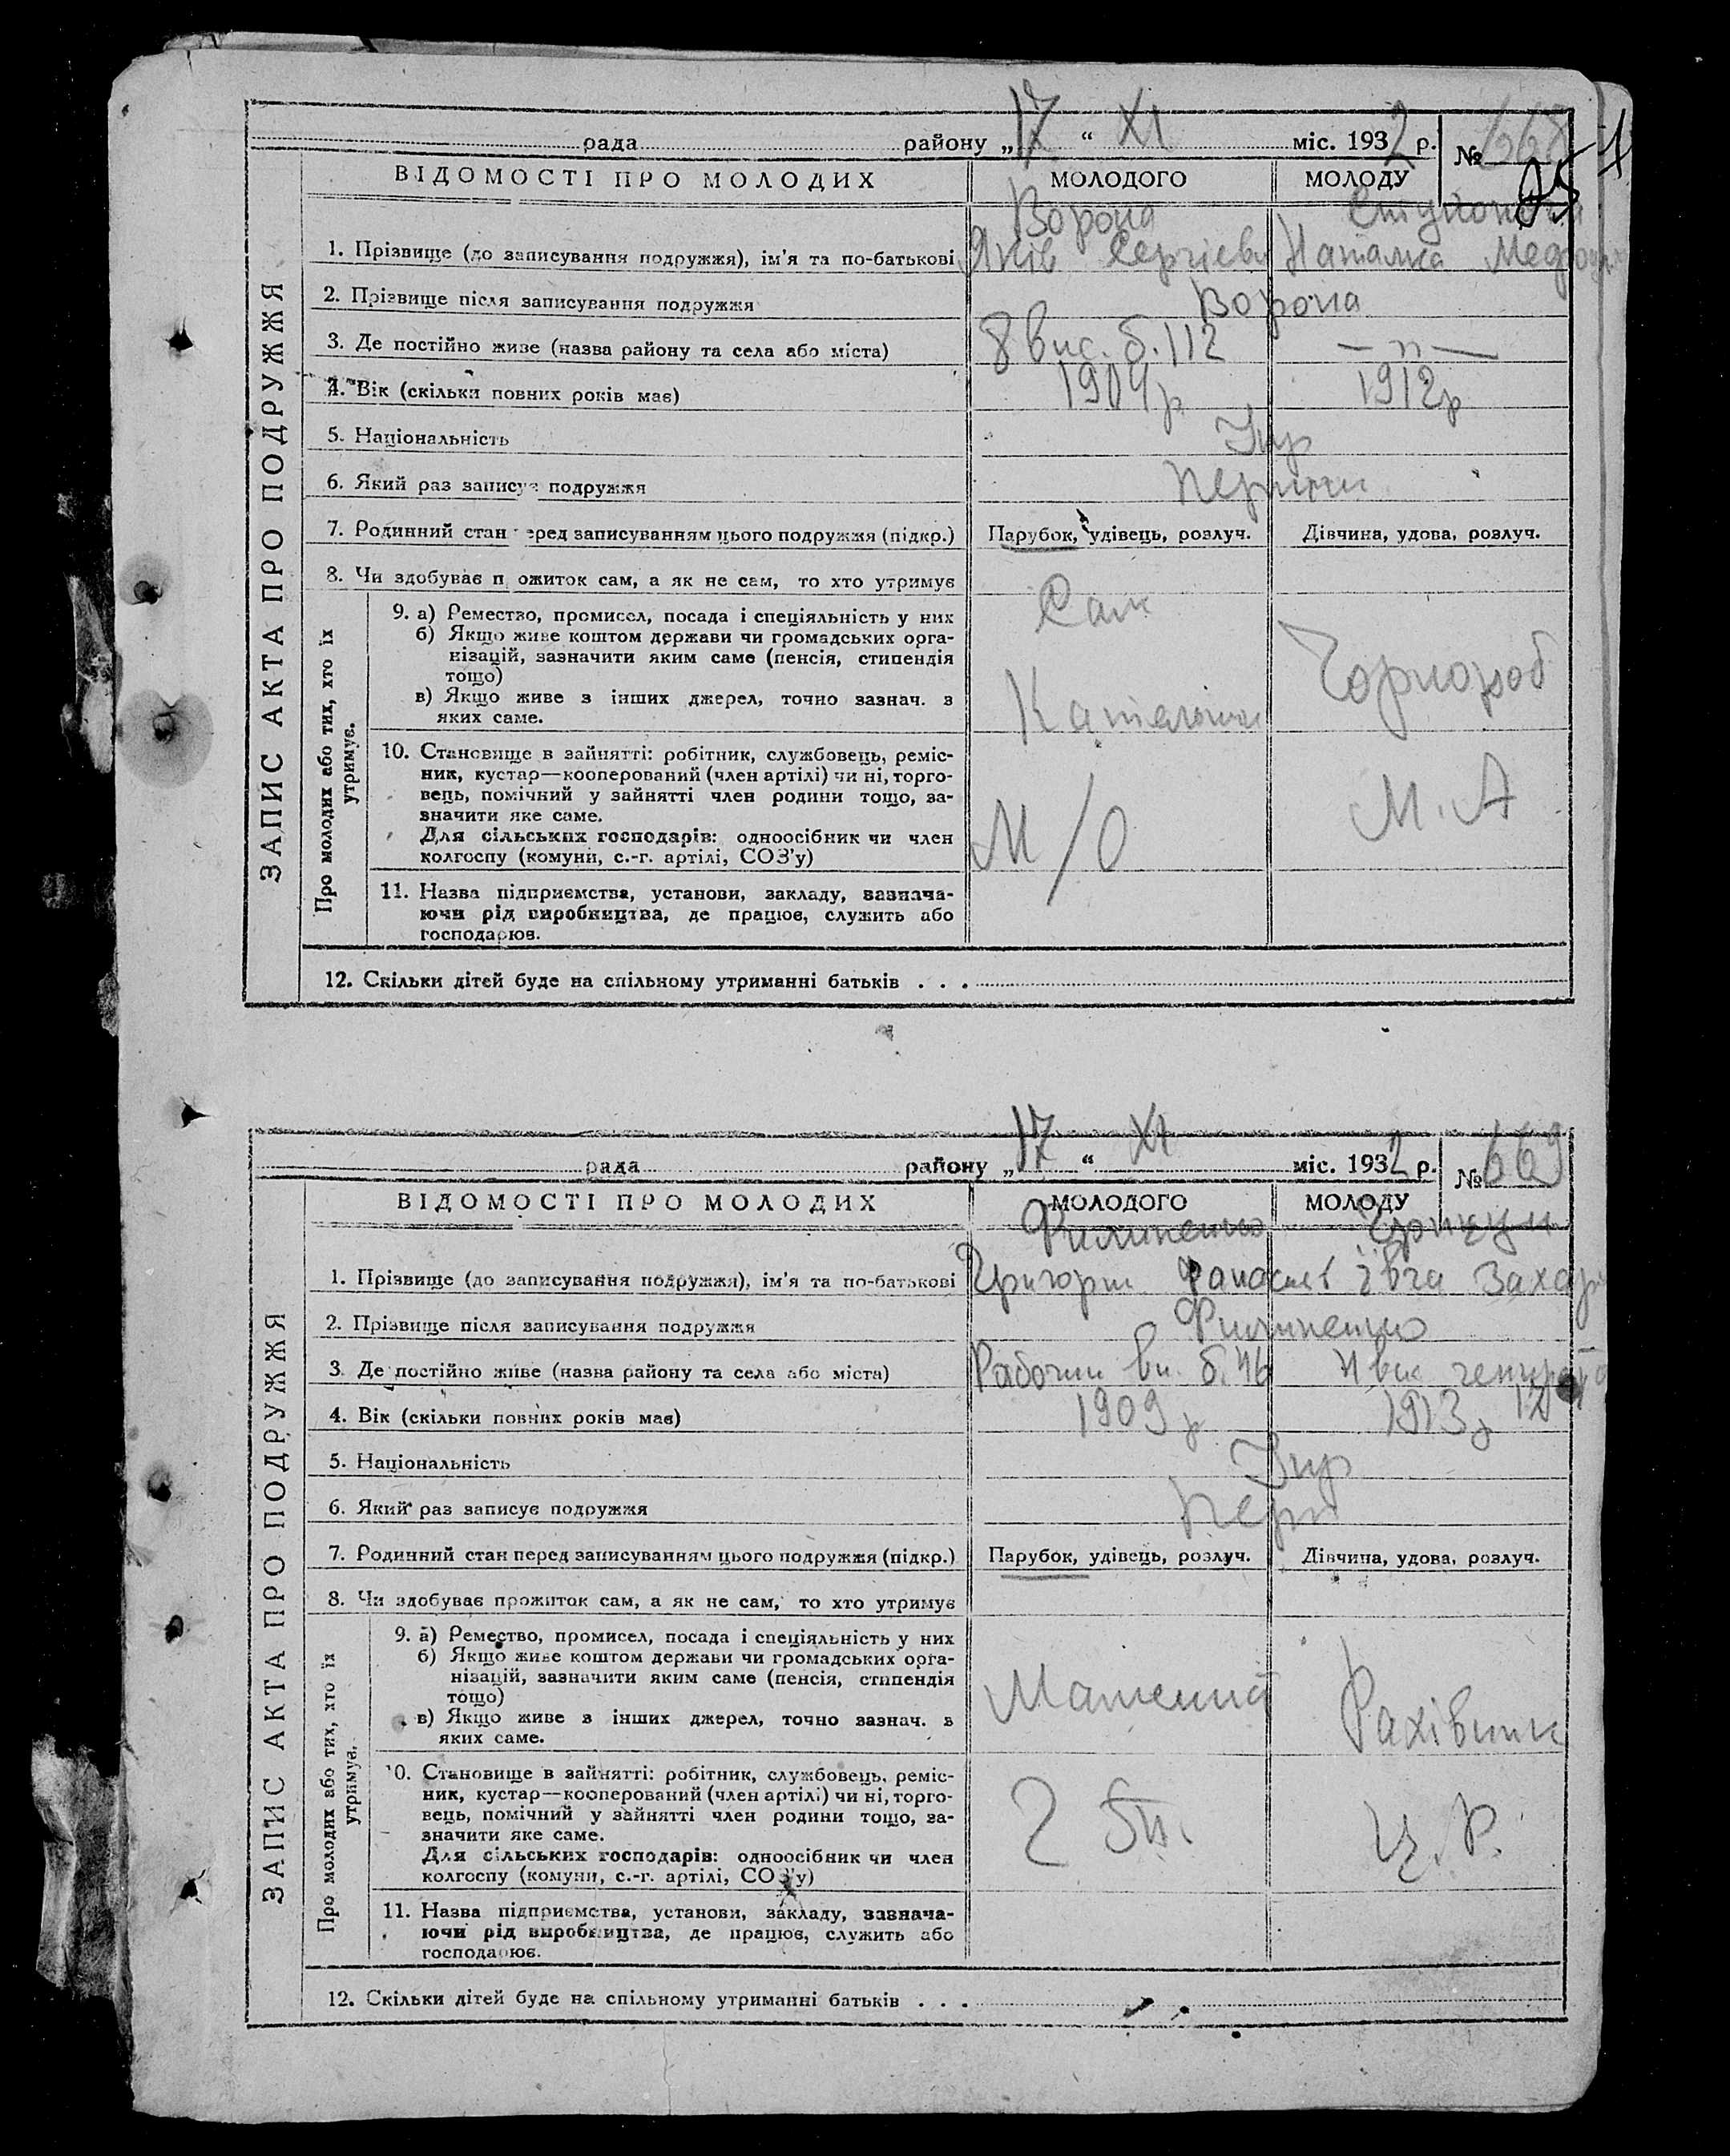 рада района „17“ XI міс. 1932 р. № 668
ВІДОМОСТІ ПРО МОЛОДИХ МОЛОДОГО МОЛОДУ
ЗАПИС АКТА ПРО ПОДРУЖЖЯ
Ворона
1. Прізвище (до записування подружжя), ім'я та по-батькові Яків Сергієв Наталка
2. Прізвище після записування подружжя Ворона
3. Де постійно живе (назва району та села або міста) 8 вис. б. 112 — " —
4. Вік (скільки повних років має) 1904 р 1912 р
5. Національність Укр
6. Який раз записує подружжя
7. Родинний стан перед записуванням цього подружжя (підкр.) Парубок, удівець, розлуч. Дівчина, удова, розлуч.
8. Чи здобуває прожиток сам, а як не сам, то хто утримує Сам
Про молодих або тих, хто їх утримує.
9. а) Ремество, промисел, посада і спеціяльність у них
б) Якщо живе коштом держави чи громадських орга-
нізацій, зазначити яким саме (пенсія, стипендія
тощо) Чорнороб
в) Якщо живе з інших джерел, точно зазнач. з
яких саме.
10. Становище в зайнятті: робітник, службовець, реміс-
ник, кустар—кооперований (член артілі) чи ні, торго-
вець, помічний у зайнятті член родини тощо, за- М. А
значити яке саме. М/О
Для сільських господарів: одноосібник чи член
колгоспу (комуни, с.-г. артілі, СОЗ'у)
11. Назва підприємства, установи, закладу, зазнача-
ючи рід виробництва, де працює, служить або
господарює.
12. Скільки дітей буде на спільному утриманні батьків . . .
рада району „17“ XI міс. 1932 р. № 669
ВІДОМОСТІ ПРО МОЛОДИХ МОЛОДОГО МОЛОДУ
ЗАПИС АКТА ПРО ПОДРУЖЖЯ
Филипенко
1. Прізвище (до записування подружжя), ім'я та по-батькові Григорий Ївга Захар
2. Прізвище після записування подружжя Филипенко
3. Де постійно живе (назва району та села або міста) б. 46
4. Вік (скільки повних років має) 1909 р 1913 р
5. Національність Укр
6. Який раз записує подружжя Перш
7. Родинний стан перед записуванням цього подружжя (підкр.) Парубок, удівець, розлуч. Дівчина, удова, розлуч.
8. Чи здобуває прожиток сам, а як не сам, то хто утримує
Про молодих або тих, хто їх утримує.
9. а) Ремество, промисел, посада і спеціяльність у них
б) Якщо живе коштом держави чи громадських орга-
нізацій, зазначити яким саме (пенсія, стипендія
тощо)
в) Якщо живе з інших джерел, точно зазнач. з Рахівник
яких саме.
10. Становище в зайнятті: робітник, службовець, реміс-
ник, кустар—кооперований (член артілі) чи ні, торго-
вець, помічний у зайнятті член родини тощо, за-
значити яке саме. Ц. Р.
Для сільських господарів: одноосібник чи член
колгоспу (комуни, с.-г. артілі, СОЗ'у)
11. Назва підприємства, установи, закладу, зазнача-
ючи рід виробництва, де працює, служить або
господарює.
12. Скільки дітей буде на спільному утриманні батьків . . .